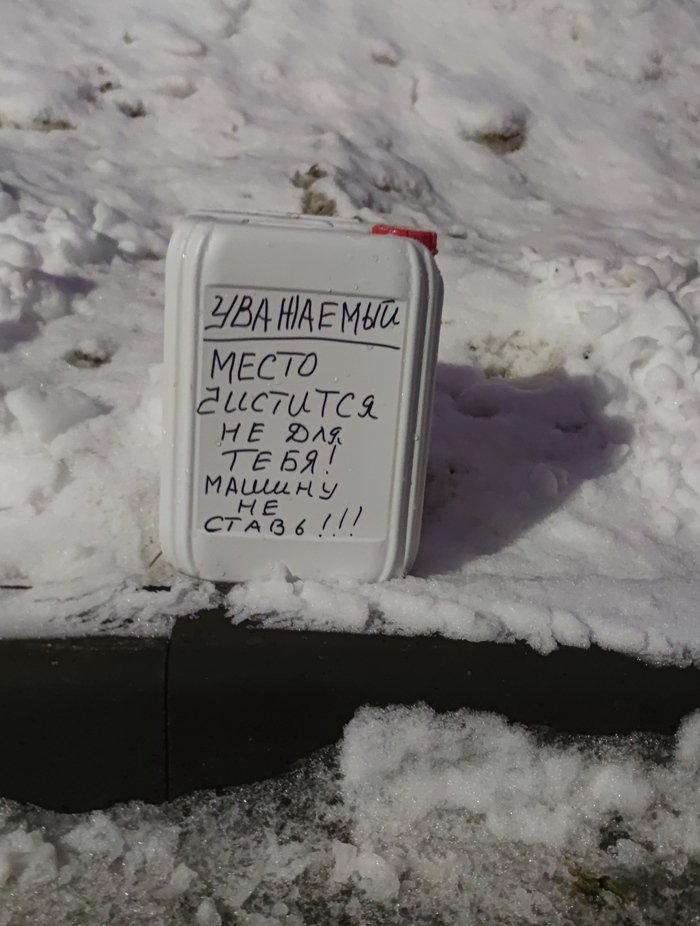 УВАЖАЕМЫЙ
МЕСТО
ЧИСТИТСЯ
НЕ ДЛЯ
ТЕБЯ!
МАШИНУ
НЕ
СТАВЬ!!!